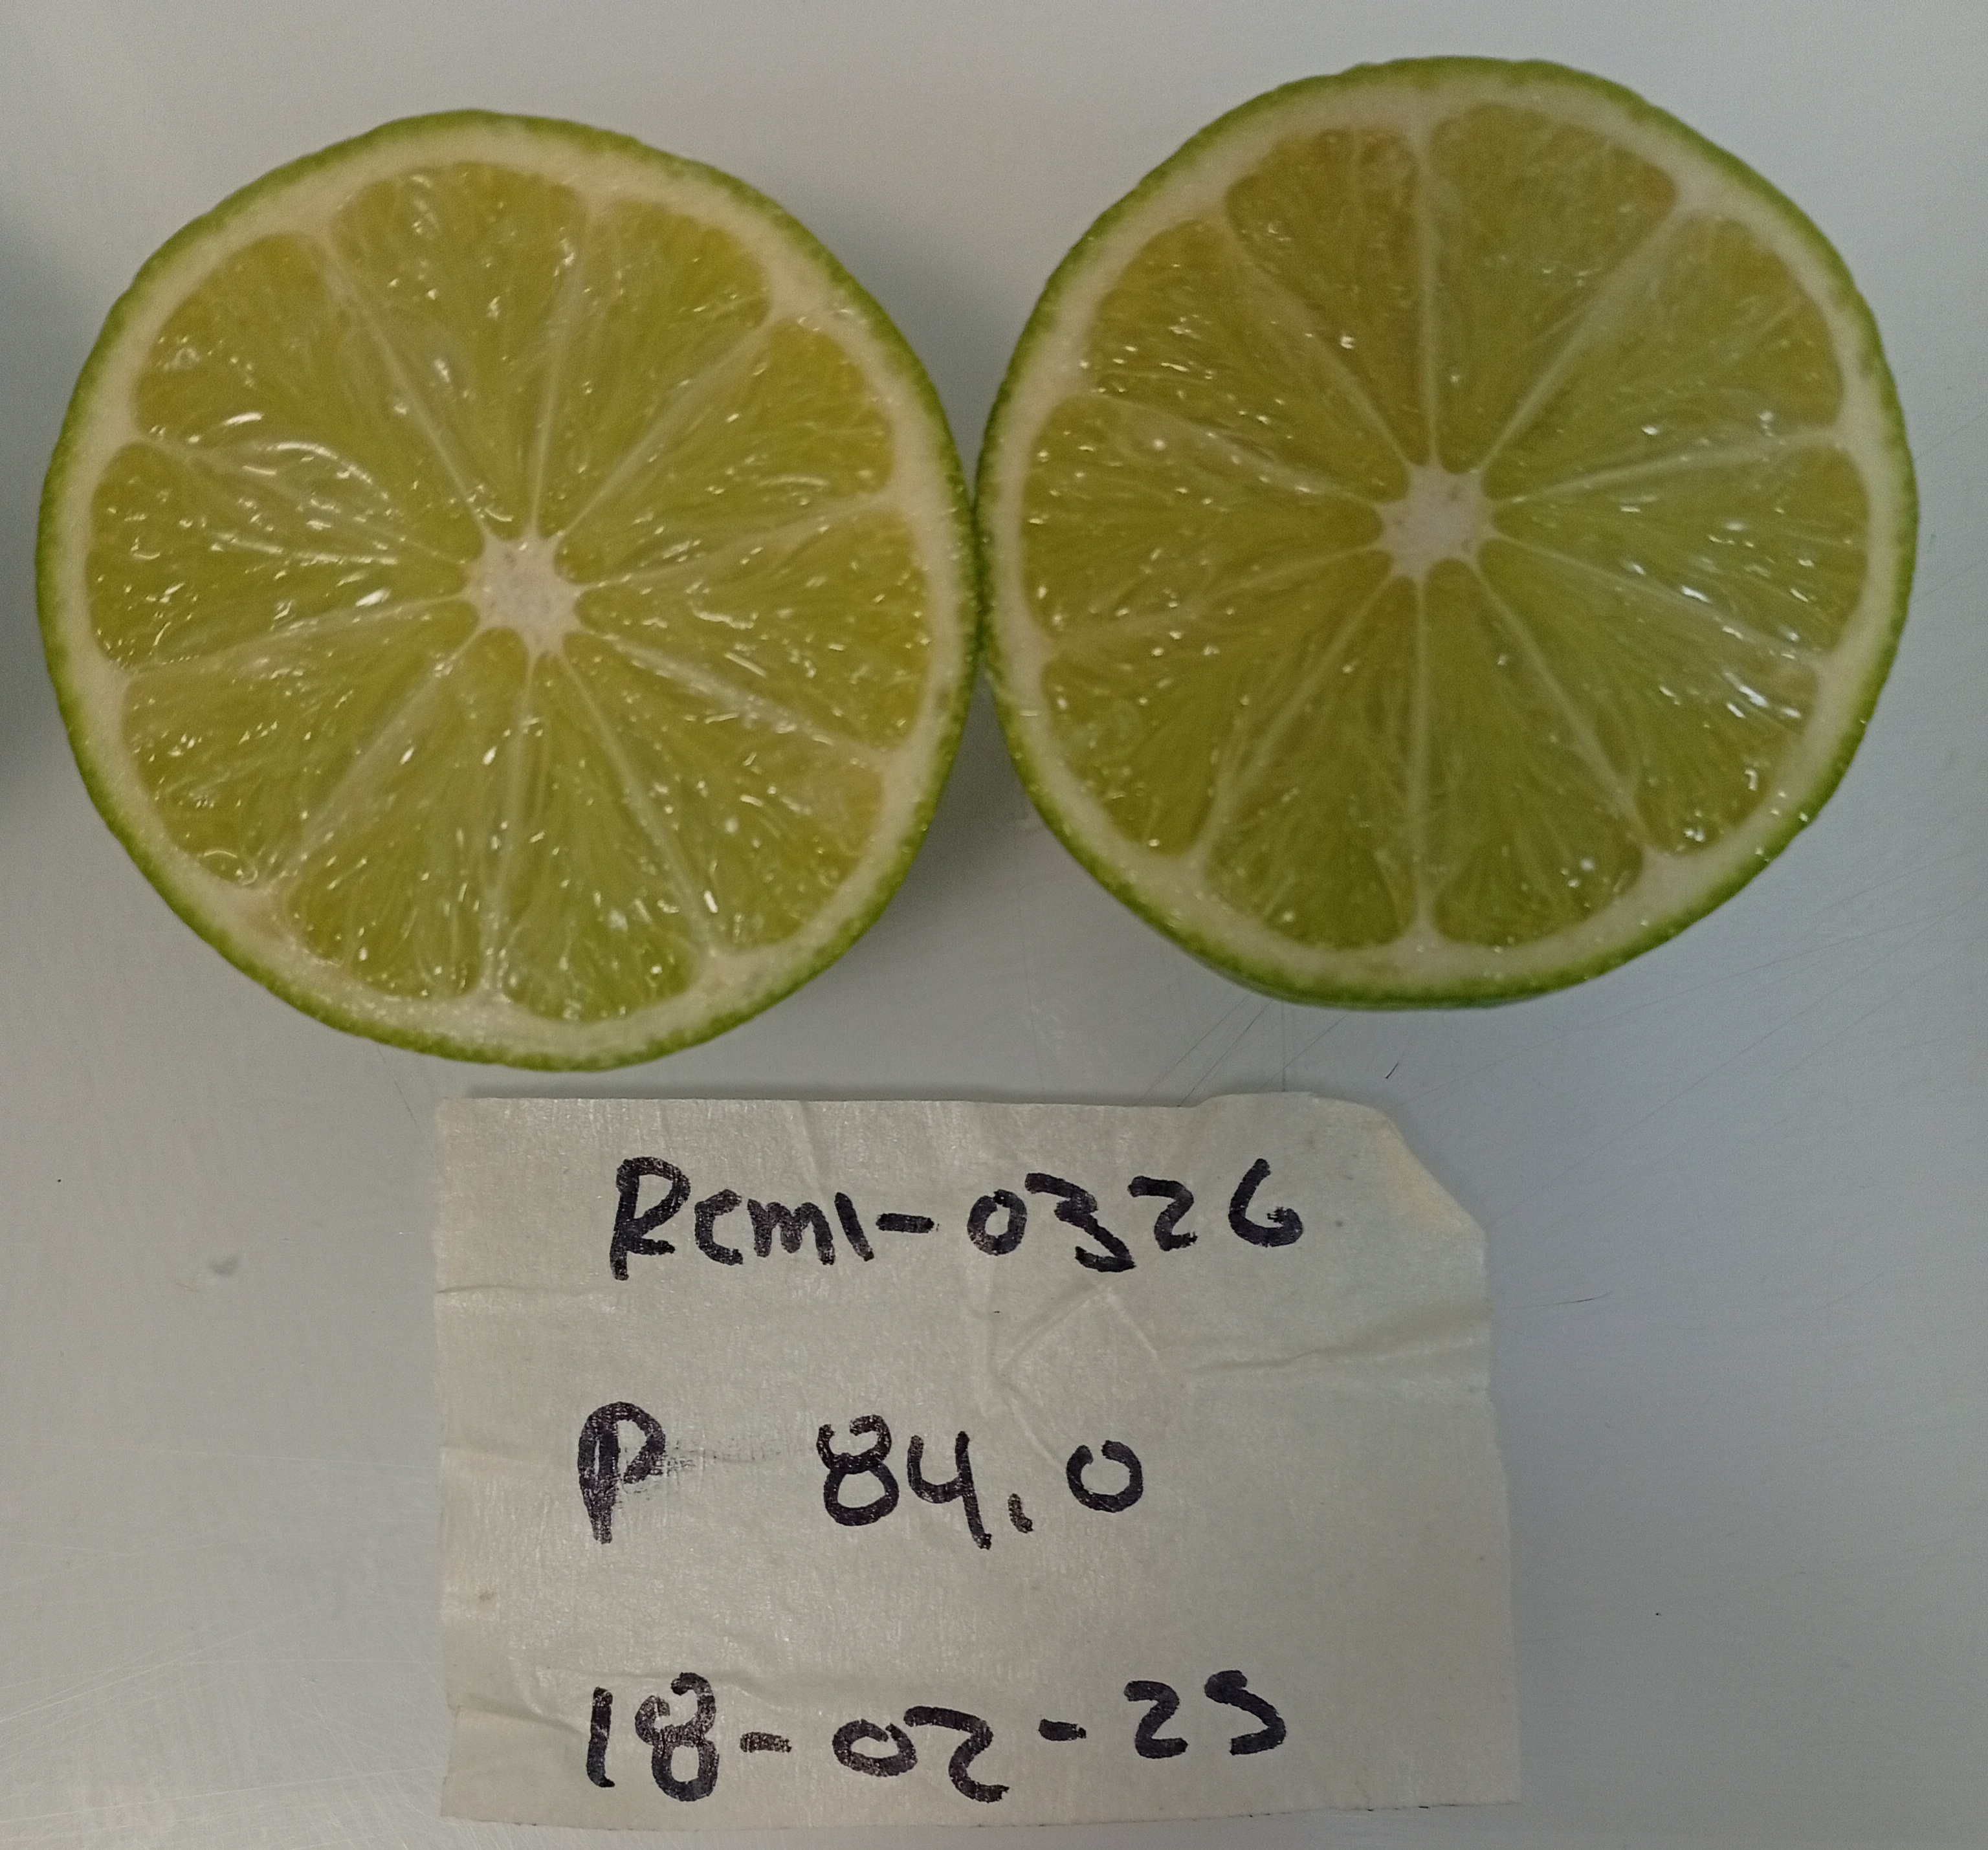 Rcml-0326
P 84.0
18-02-25